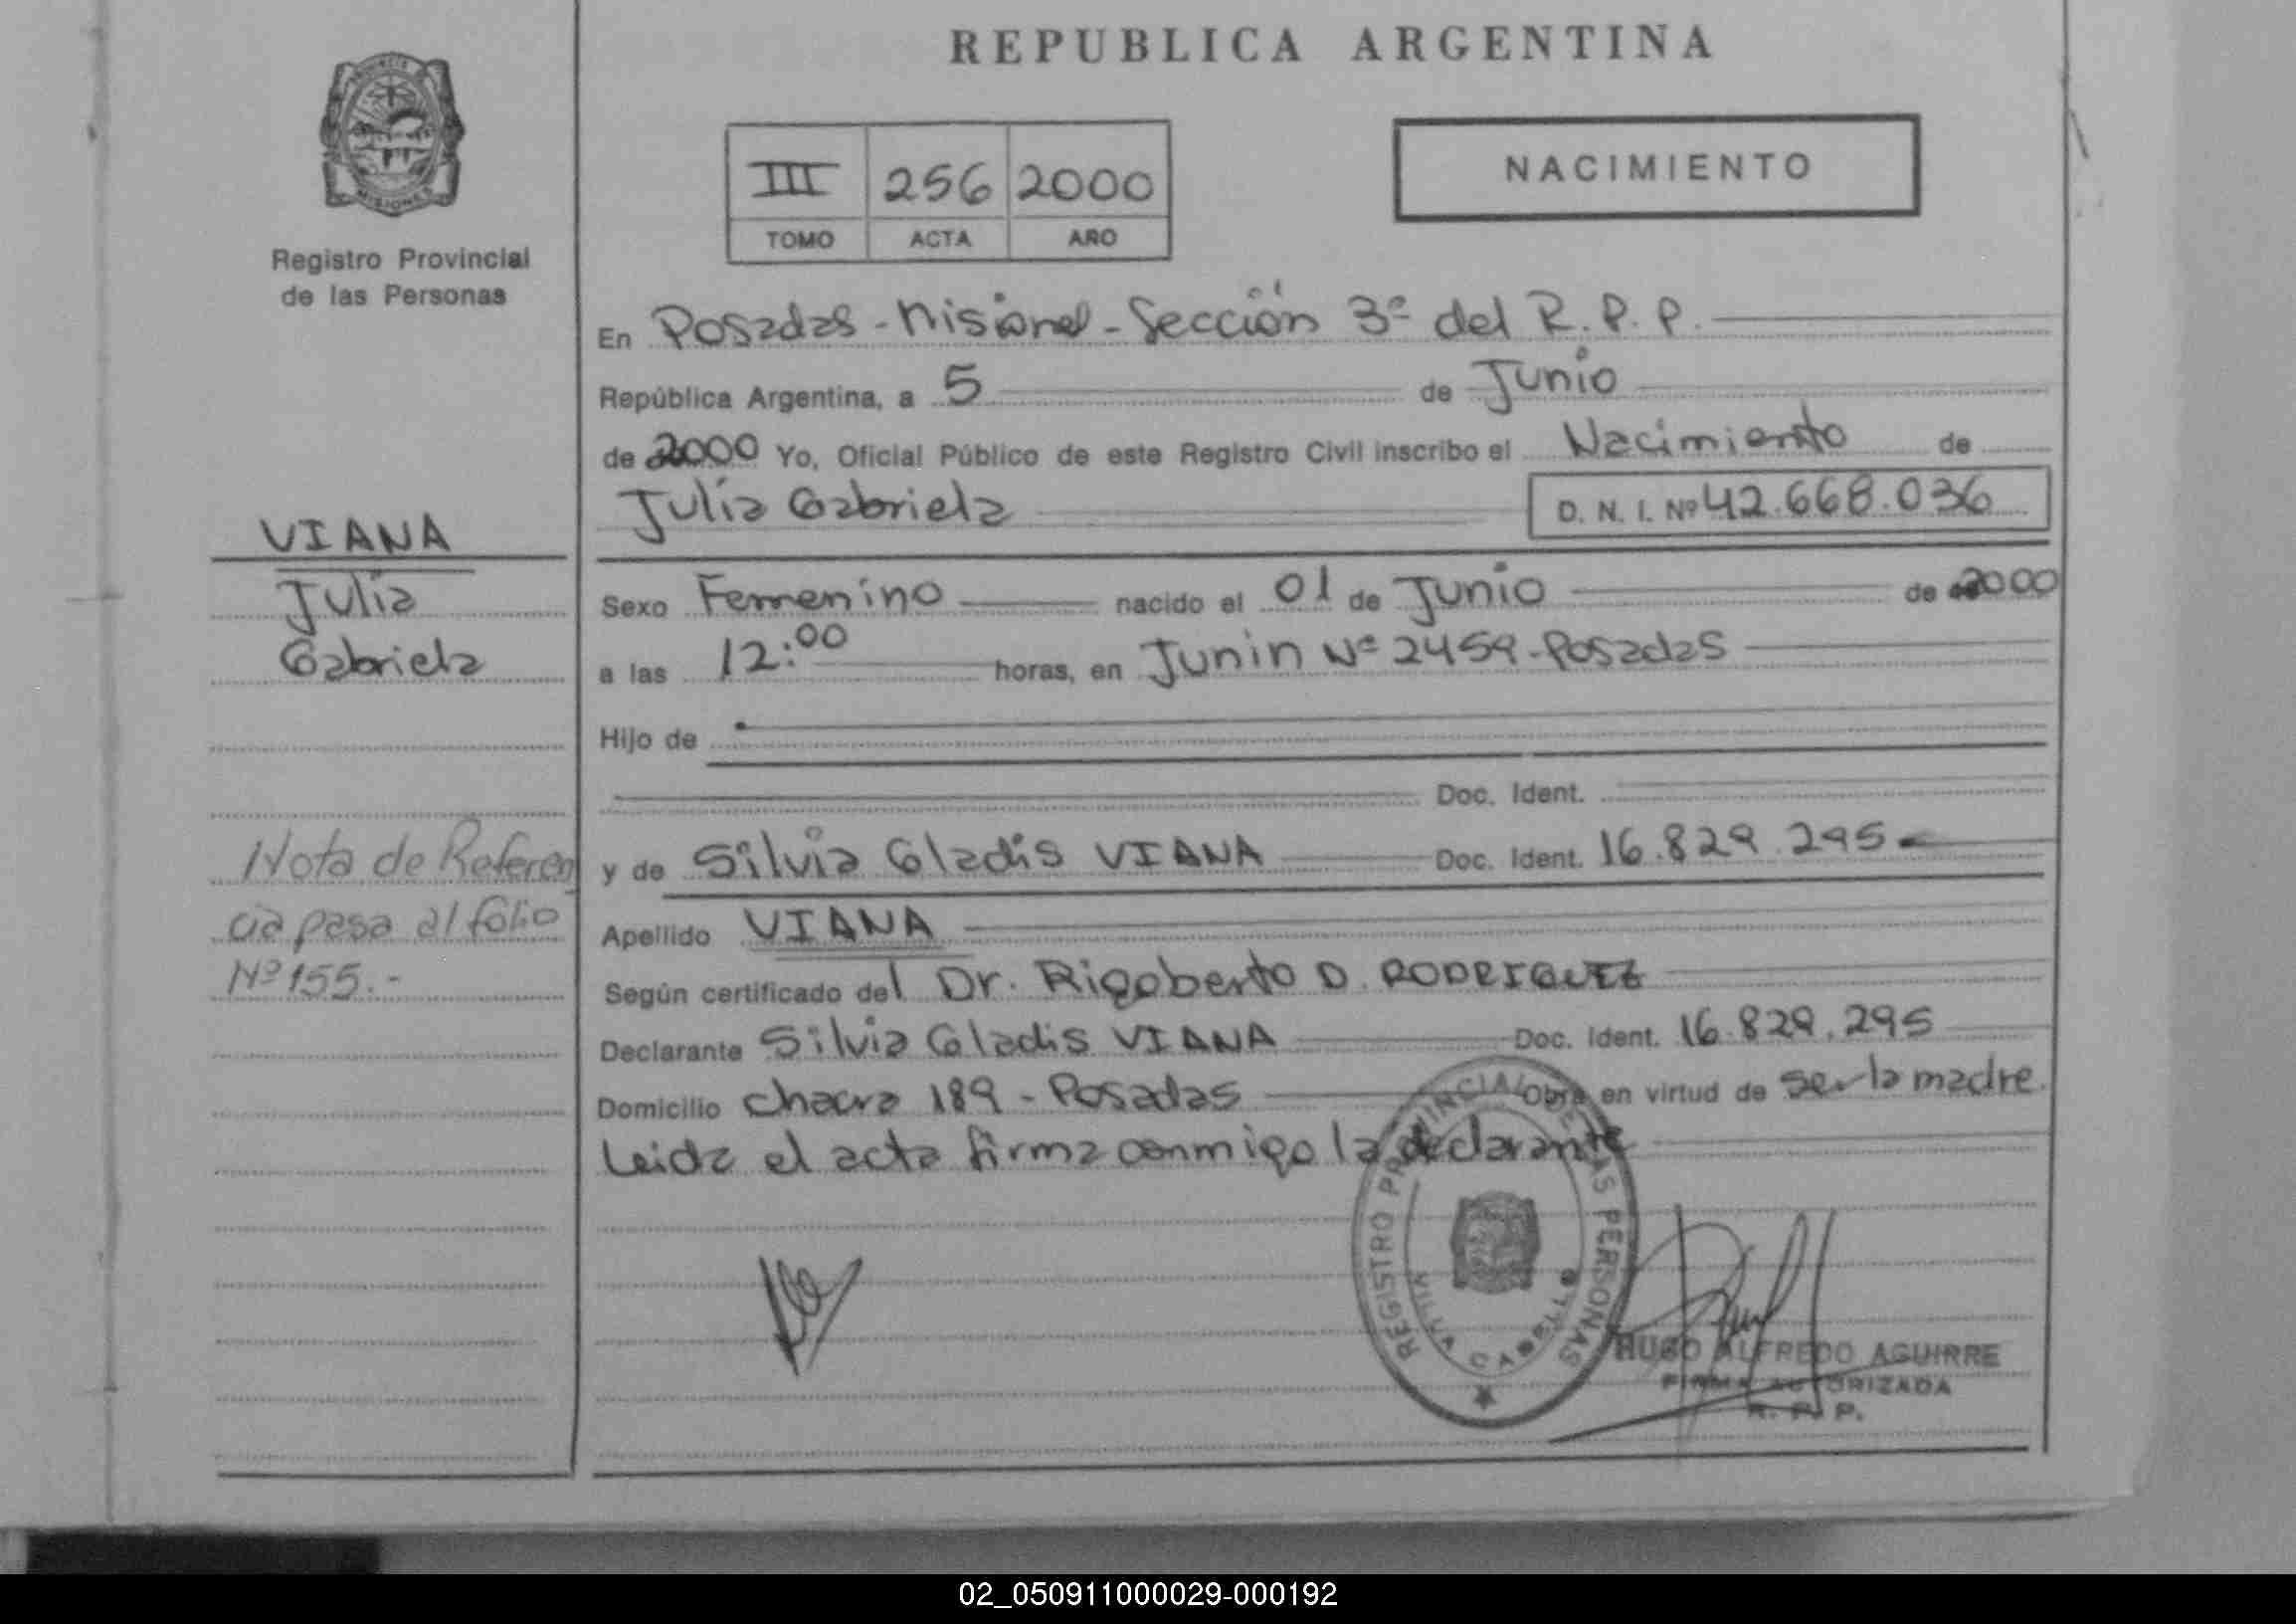 REPUBLICA ARGENTINA
PROVINCIA DE MISIONES
Registro Provincial
de las Personas
III 256 2000
TOMO ACTA AÑO
NACIMIENTO
En Posadas - Misiones - Sección 3ª del R. P. P.
República Argentina, a 5 de Junio
de 2000 Yo, Oficial Público de este Registro Civil inscribo el Nacimiento de
Julia Gabriela D. N. I. Nº 42.668.036
VIANA
Julia
Gabriela
Sexo Femenino nacido el 01 de Junio de 2000
a las 12:00 horas, en Junin Nº 2459 - Posadas
Hijo de
Doc. Ident.
y de Silvia Gladis VIANA Doc. Ident. 16.829.295
Nota de Referen
cia pasa al folio
Nº 155.-
Apellido VIANA
Según certificado del Dr. Rigoberto D. RODRIGUEZ
Declarante Silvia Gladis VIANA Doc. Ident. 16.829.295
Domicilio Chacra 189 - Posadas Obra en virtud de ser la madre.
Leida el acta firma conmigo la declarante
REGISTRO PROVINCIAL DE LAS PERSONAS
VILLA CABELLO
HUGO ALFREDO AGUIRRE
FIRMA AUTORIZADA
R. P. P.
02_050911000029-000192